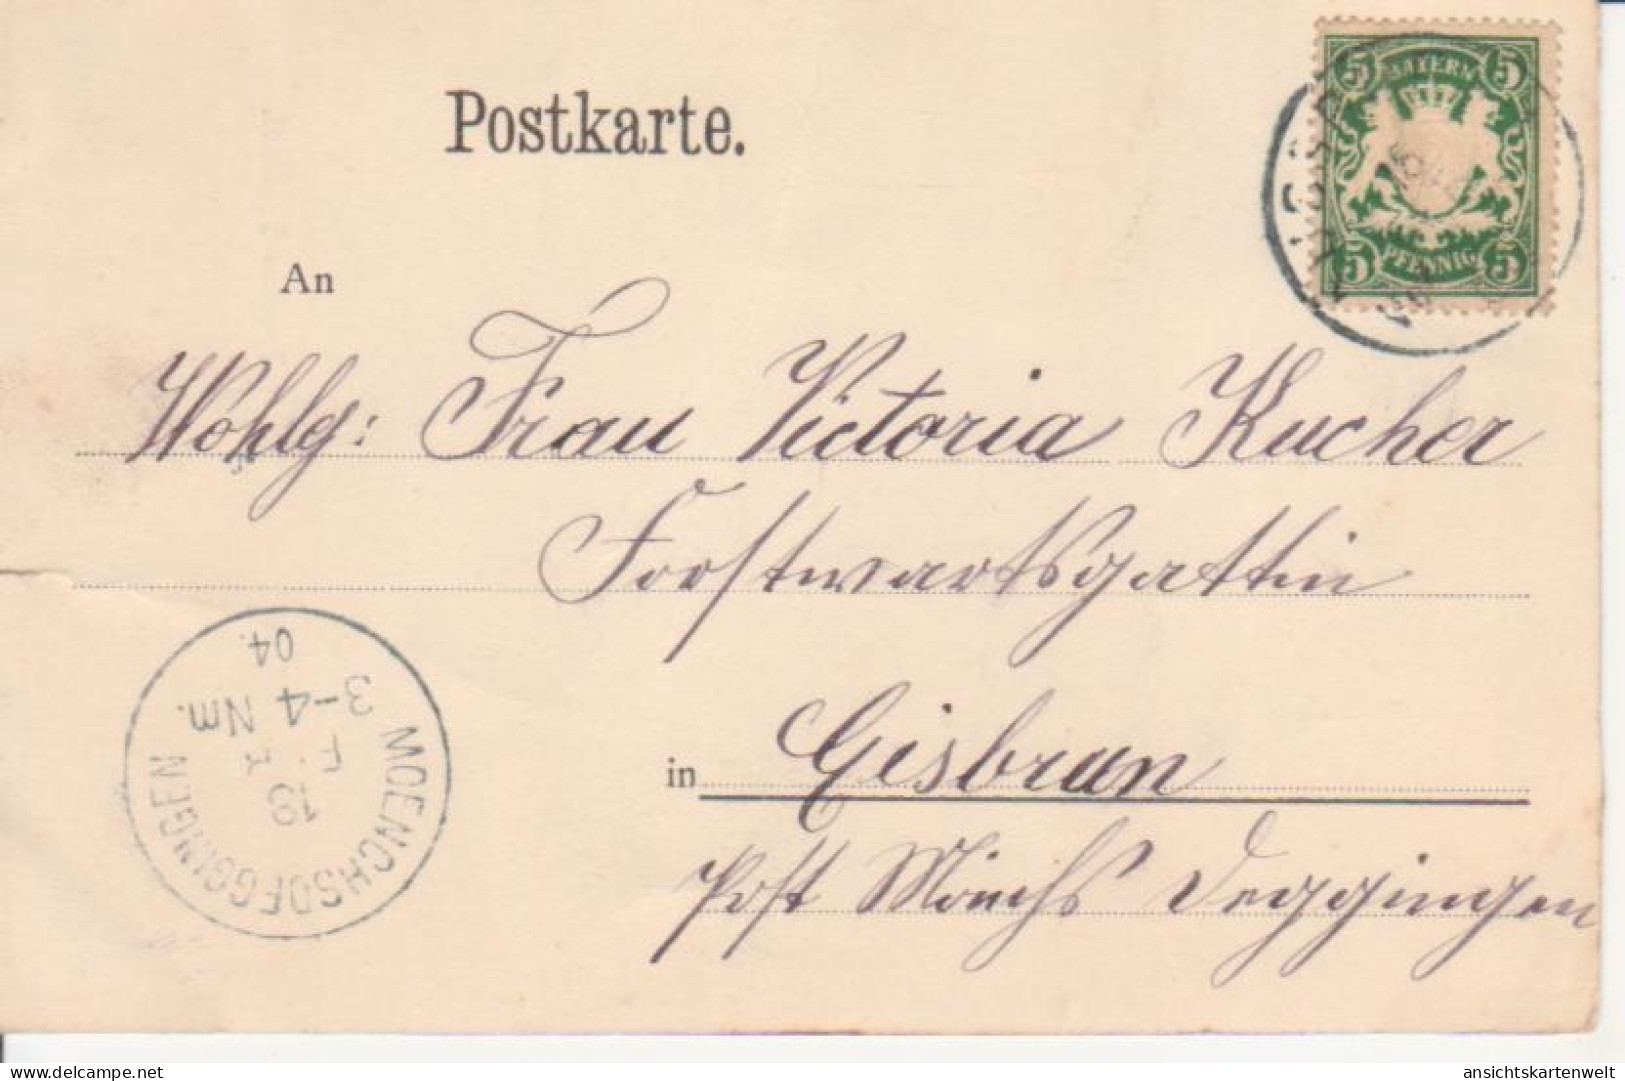 Postkarte.
BAYERN
5 5
5 PFENNIG 5
An
Wohlg: Frau Victoria Kucher
Forstwartsgattin
in Eisbrun
Post Mönchs Deggingen
MOENCHSDEGGINGEN
19
3-4 Nm.
04.
Merci de visiter
ansichtskartenwelt